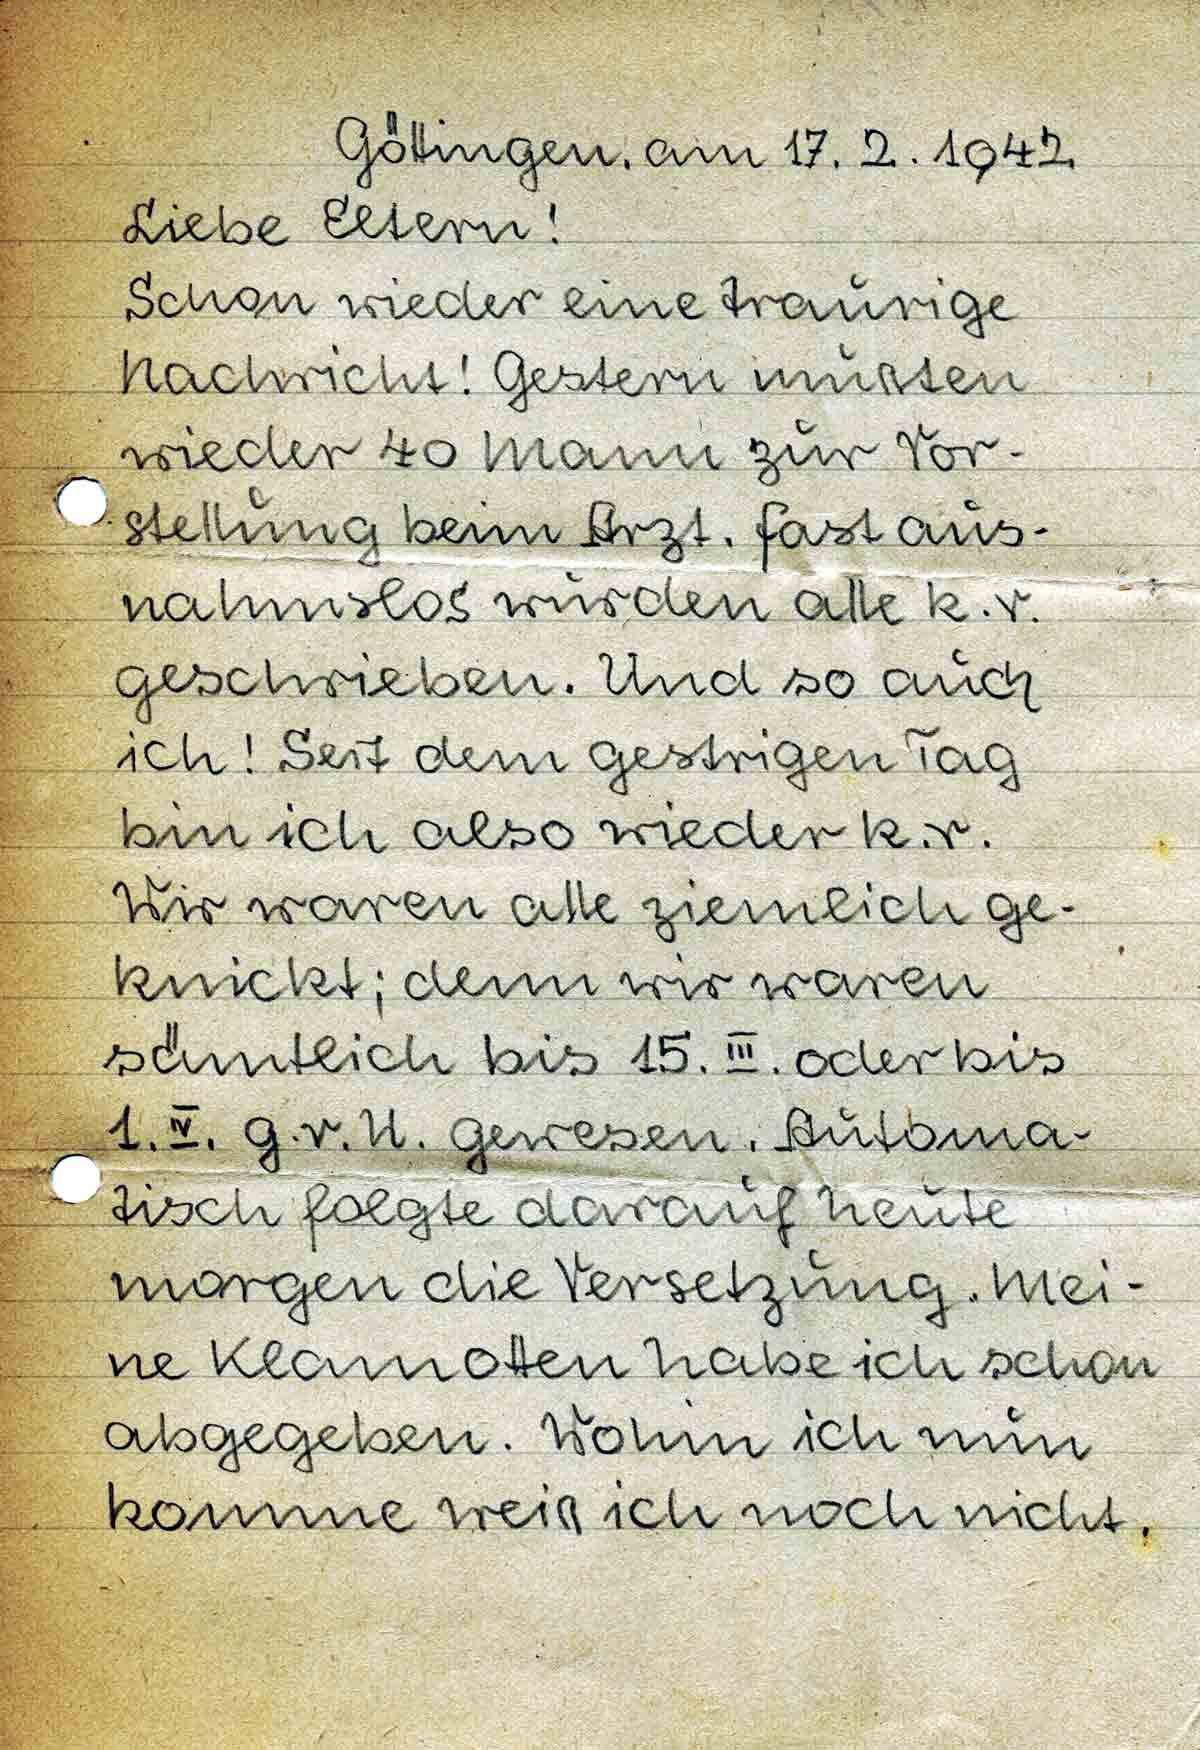 Göttingen, am 17. 2. 1942
Liebe Eltern!
Schon wieder eine traurige
Nachricht! Gestern mußten
wieder 40 Mann zur Vor-
stellung beim Arzt. Fast aus-
nahmslos wurden alle k.v.
geschrieben. Und so auch
ich! Seit dem gestrigen Tag
bin ich also wieder k.v.
Wir waren alle ziemlich ge-
knickt; denn wir waren
sämtlich bis 15. III. oder bis
1. IV. g.v.H. gewesen. Automa-
tisch folgte darauf heute
morgen die Versetzung. Mei-
ne Klamotten habe ich schon
abgegeben. Wohin ich nun
komme weiß ich noch nicht.